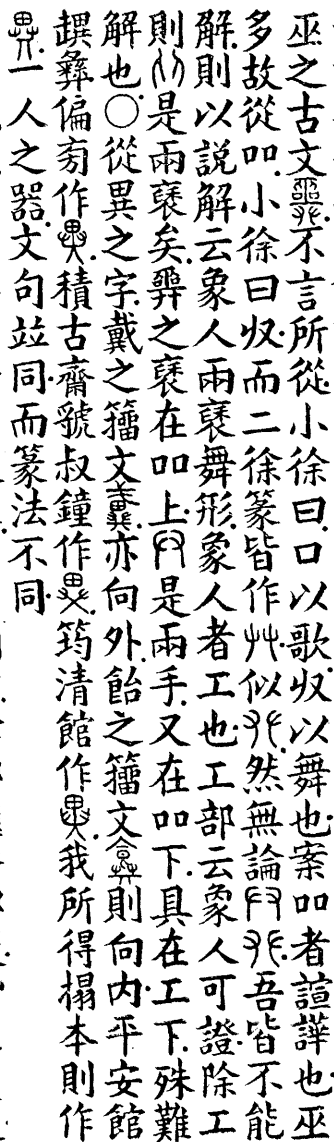 巫之古文不言所從小徐曰口以歌収以舞也案吅者諠譁也巫
多故從吅小徐曰収而二徐篆皆作艸似然無論吾皆不能
解則以說解云象人兩褎舞形象人者工也工部云象人可證除工
則是兩褎矣𢍮之褎在吅上是兩手又在吅下具在工下殊難
解也○從異之字戴之籒文亦向外飴之籒文則向内平安館
䪜彝偏㫄作積古齋虢叔鐘作筠清館作我所得搨本則作
一人之器文句竝同而篆法不同